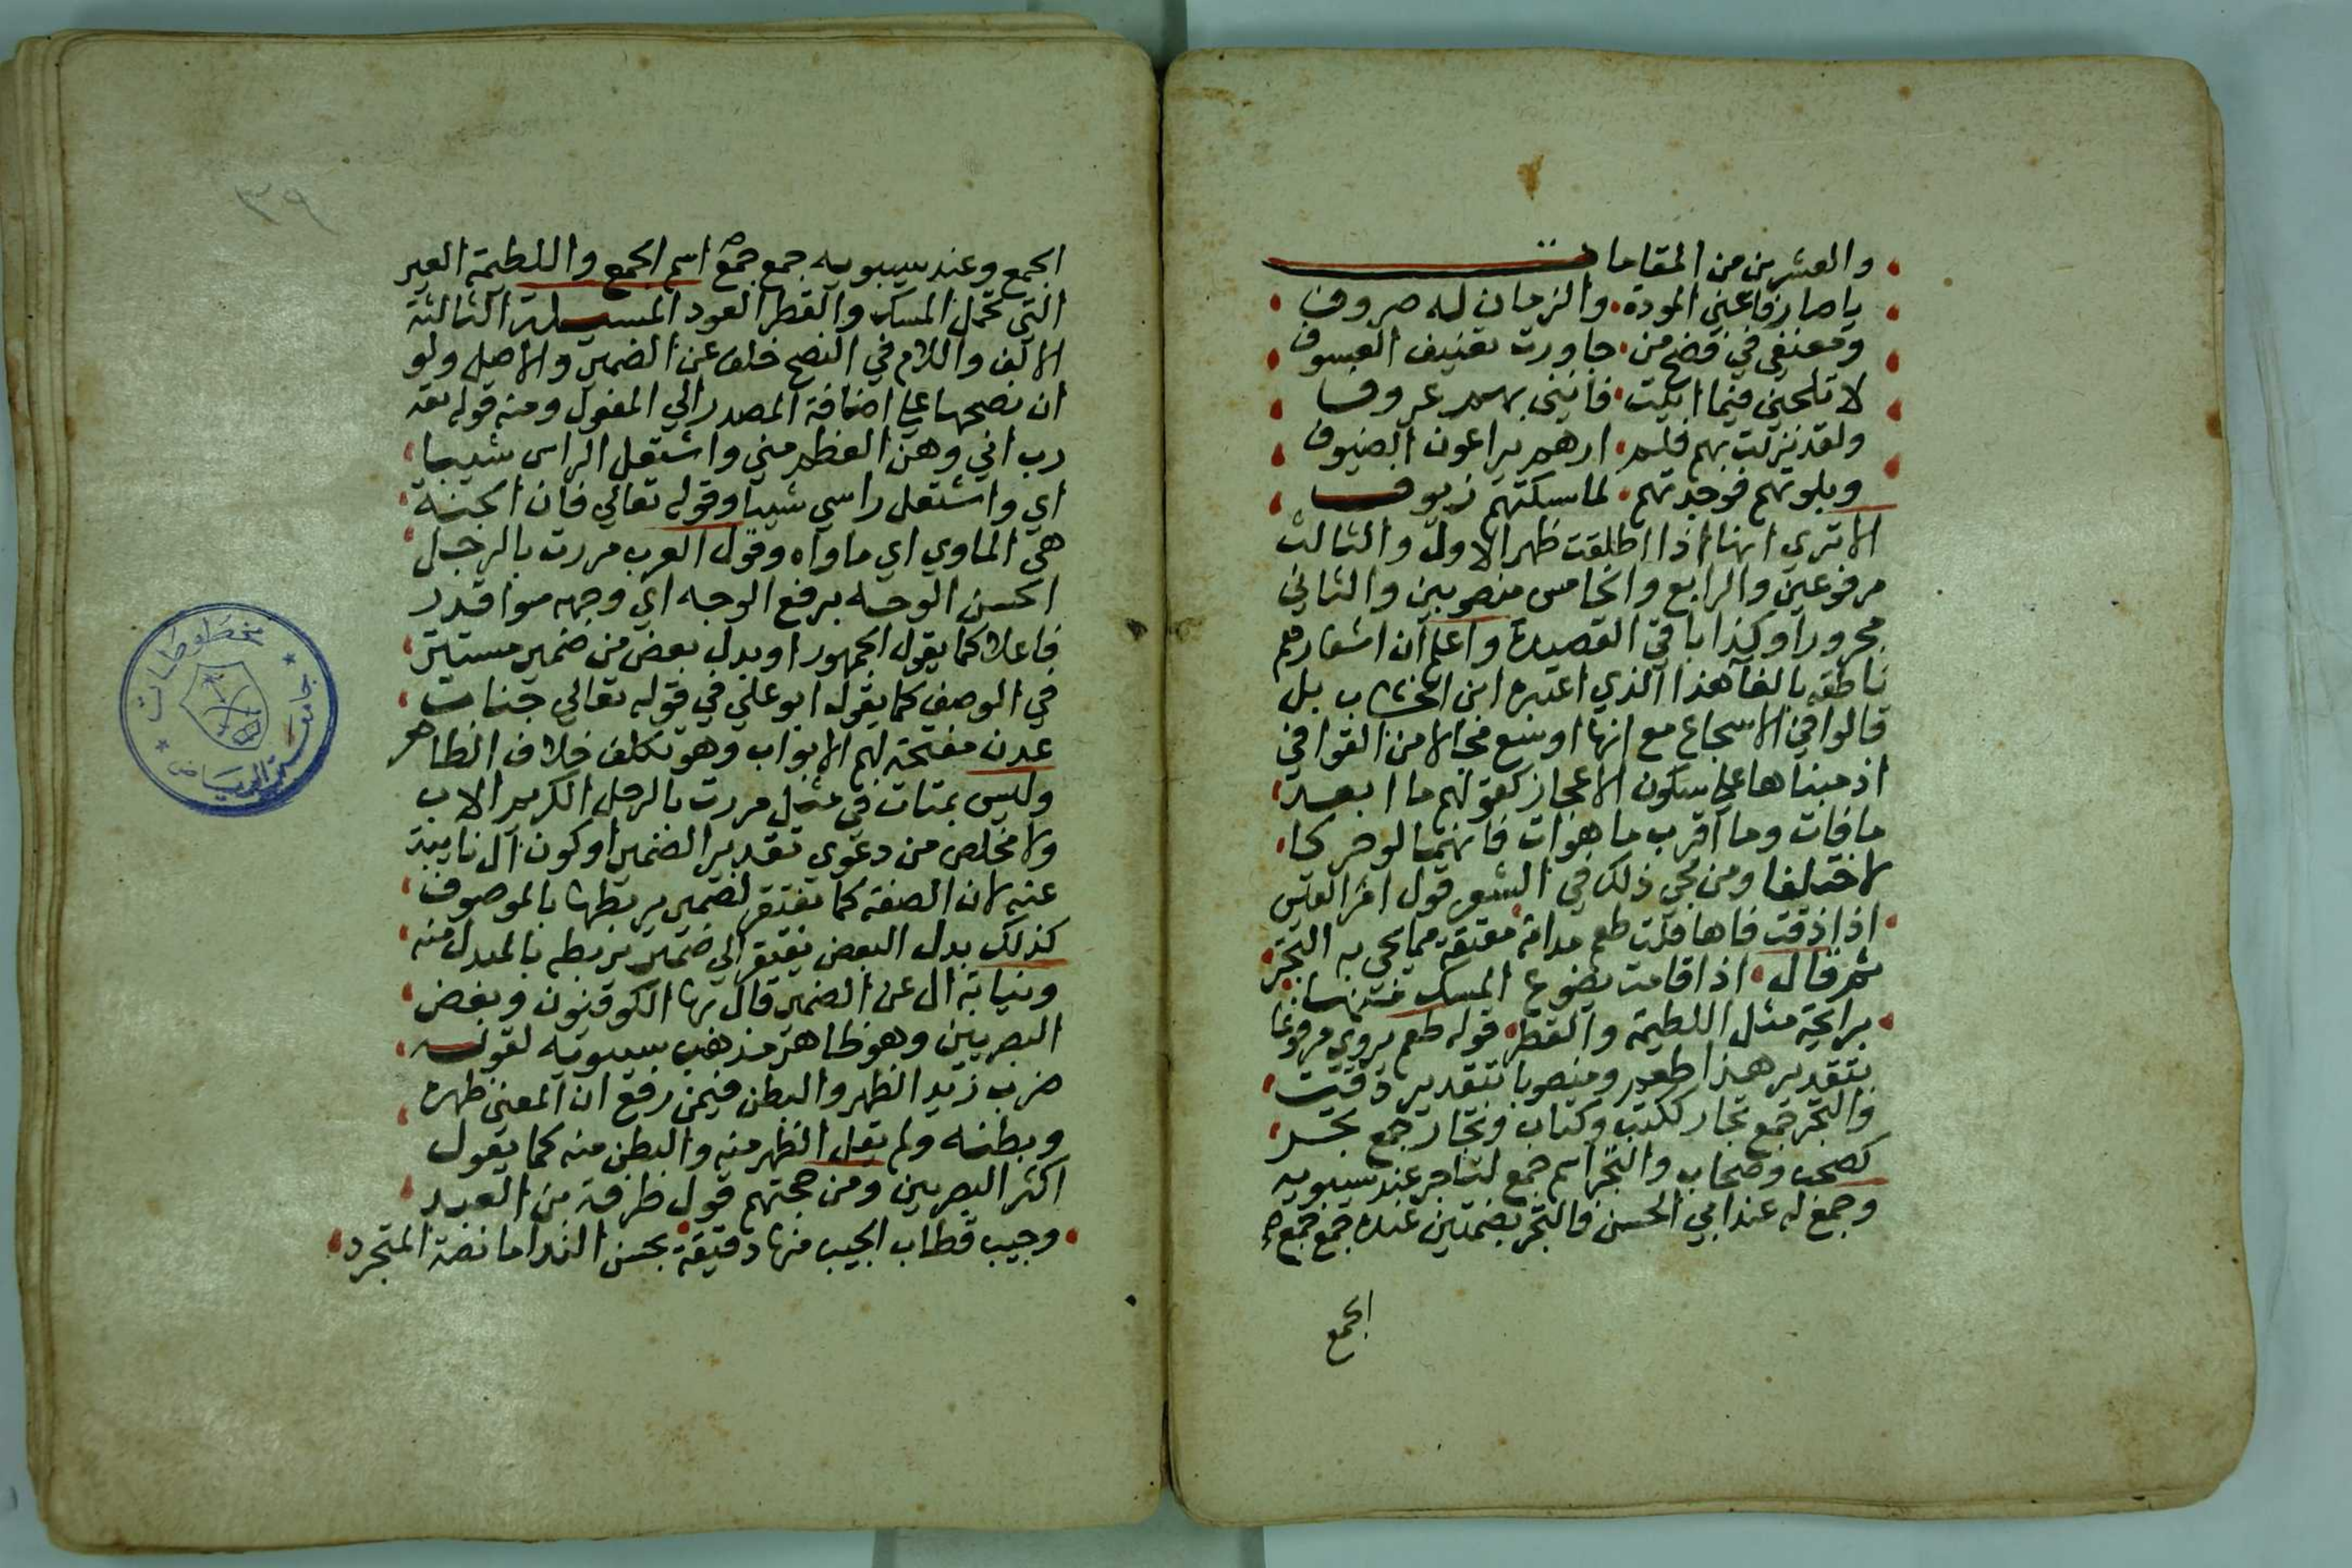 والعشرين من المقامات
يا صارفا عني المودة والزمان له صروف
ومعنفي في فضح من جاورت تعنيف العسوف
لا تلحني فيما اتيت فانني بهم عروف
ولقد نزلت بهم فلم ارهم يراعون الضيوف
وبلوتهم فوجدتهم لما سبكتهم زيوف
الا تري انها اذا اطلقت ظهر الاول والثالث
مرفوعين والرابع والخامس منصوبين والثاني
مجرورا وكذا باقي القصيدة واعلم ان اشعارهم
ناطقه بالغا هذا الذي اعتبره ابن الخشاب بل
قالوا في الاسجاع مع انها اوسع مجالا من القوافي
اذ مبناها علي سكون الاعجاز كقولهم ما ابعد
ما فات وما اقرب ما هوات فانهما لو حركا
لاختلفا ومن مجي ذلك في الشعر قول امرء القيس
اذا ذقت فاها قلت طعم مدامة معتقة مما تجي به التجر
ثم قال اذا قامت تضوع المسك منهما
برايحة مثل اللطيمة والقطر قوله طعم يروي مرفوعا
بتقدير هذا طعم ومنصوبا بتقدير ذقت
والتجر جمع تجار ككتب وكتاب وتجار جمع تجر
كصحب وصحاب والتجر اسم جمع لتاجر عند سيبويه
وجمع له عند ابي الحسن فالتجر بضمتين عنده جمع جمع
الجمع
٣٩
الجمع وعند سيبويه جمع جمع اسم الجمع واللطيمة العير
التي تحمل المسك والقطر العود المسيلة الثالثة
الالف واللام في النصح خلف عن الضمير والاصل ولو
ان نصحها علي اضافة المصدر الي المفعول ومنه قوله تعه
رب اني وهن العظم مني واشتعل الراس شيبا
اي واشتعل راسي شيبا وقوله تعالي فان الجنة
هي الماوي اي ماواه وقول العرب مررت بالرجل
الحسن الوجه برفع الوجه اي وجهه سوا قدر
فاعلا كما يقول الجمهور او بدل بعض من ضمير مستتر
في الوصف كما يقوله ابو علي في قوله تعالي جنات
عدن مفتحة لهم الابواب وهو تكلف خلاف الظاهر
وليس بمتات في مثل مررت بالرجل الكريم الاب
ولا مخلص من دعوي تقدير الضمير او كون ال نايبة
عنه لان الصفة كما تفتقر لضمير يربطها بالموصوف
كذلك بدل البعض يفتقر الي ضمير يربطه بالمبدل منه
ونيابة ال عن الضمير قال بها الكوفيون وبعض
البصريين وهو ظاهر مذهب سيبويه لقوله
ضرب زيد الظهر والبطن فيمن رفع ان المعني ظهره
وبطنه ولم يقل الظهر منه والبطن منه كما يقول
اكثر البصريين ومن حجتهم قول طرفة بن العبد
وجيب قطاب الجيب منها رقيقة بحسن الندا ما نضة المتجرد
مخطوطات
جامعة الرياض